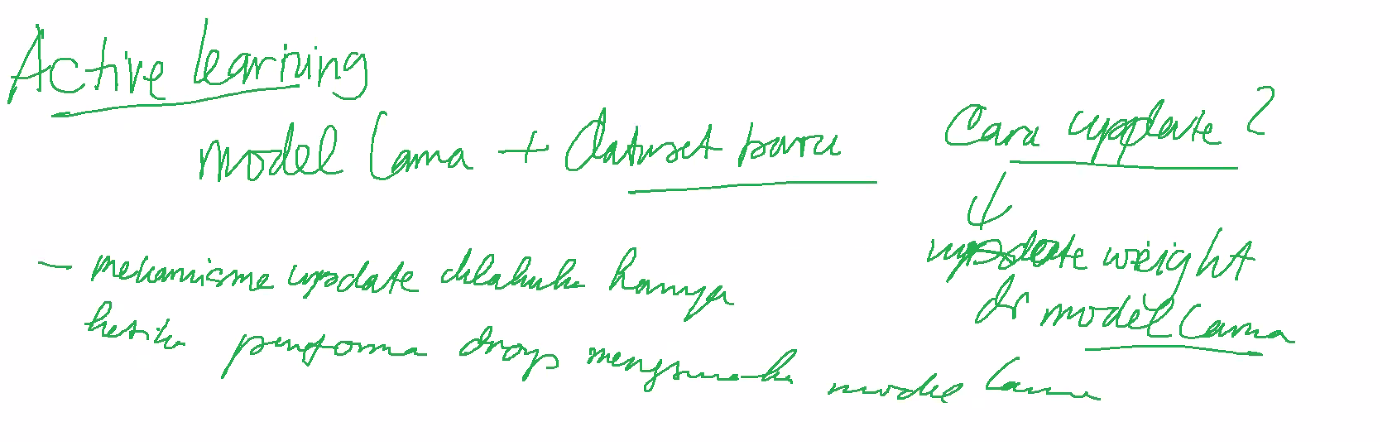 Active learning
model lama + dataset baru
Cara update?
update weight
dr model lama
- mekanisme update dilakuka hanya
ketika performa drop menggunaka model lama